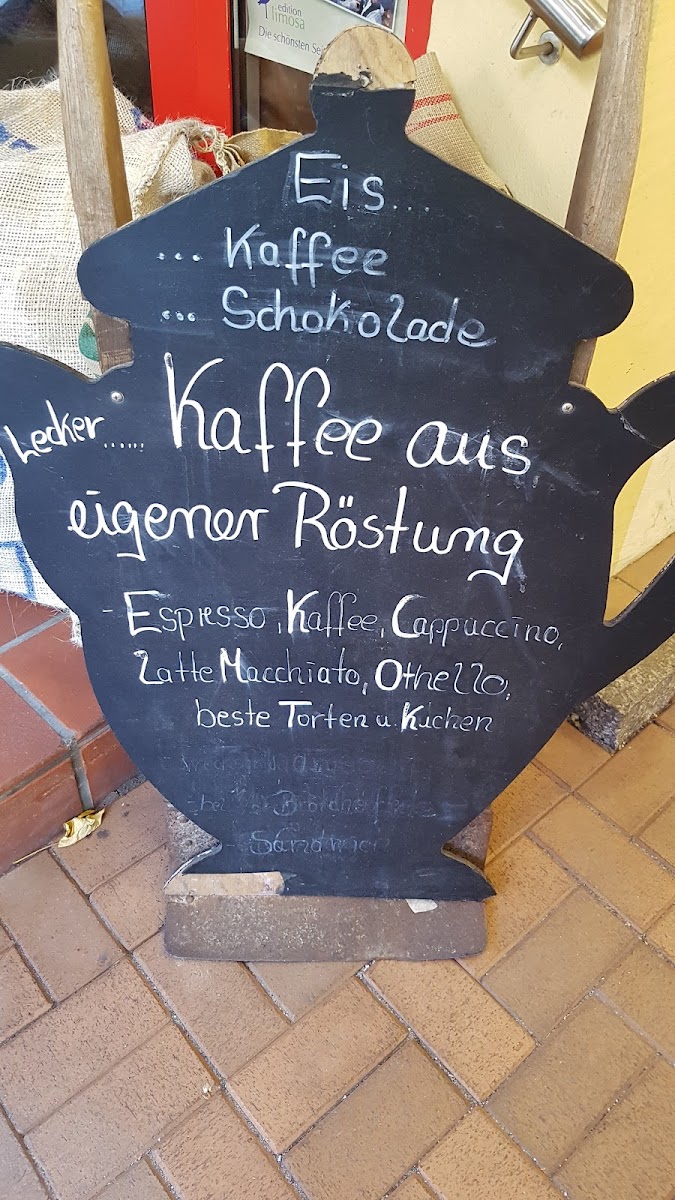 edition
limosa
Die schönsten Se
Eis...
... Kaffee
... Schokolade
Lecker...... Kaffee aus
eigener Röstung
- Espresso, Kaffee, Cappuccino,
Latte Macchiato, Othello,
beste Torten u. Kuchen